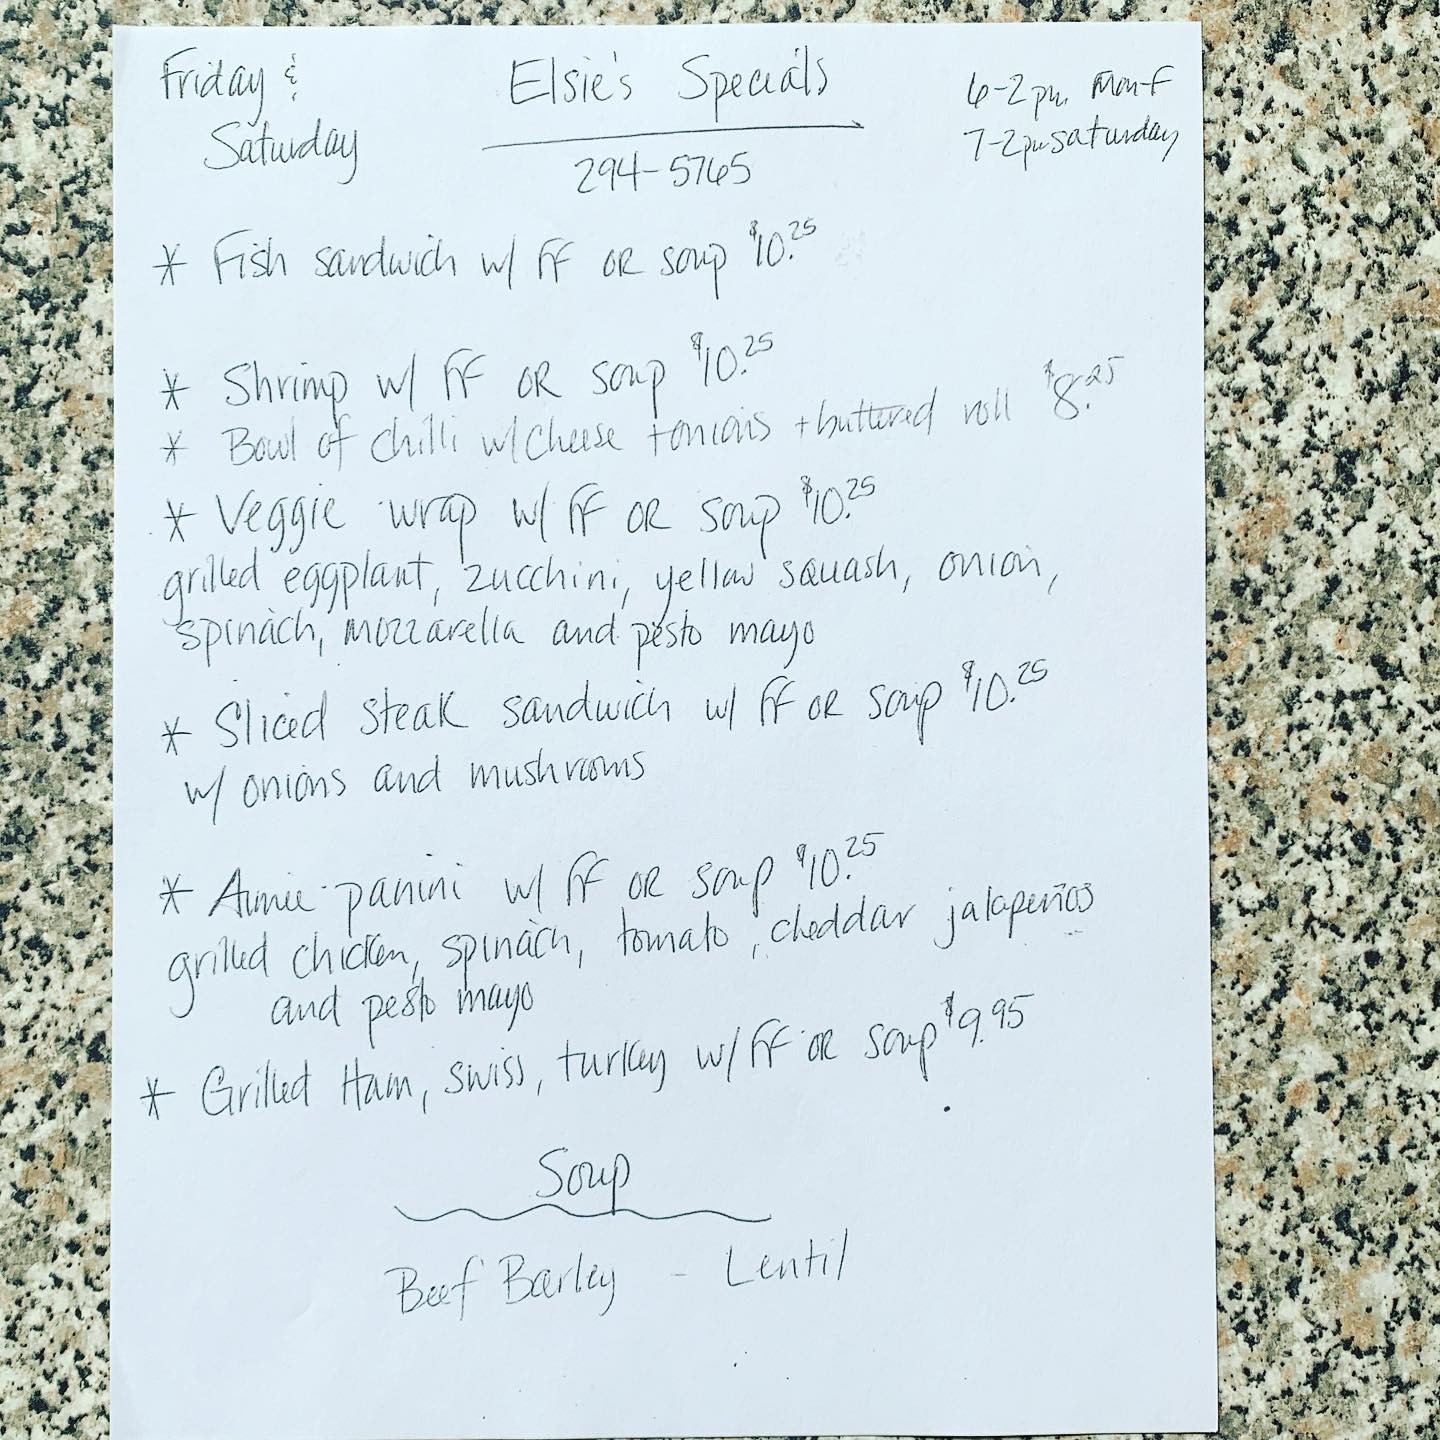 Friday &
Saturday
Elsie's Specials
294-5765
6-2pm Mon-F
7-2pm Saturday
* Fish sandwich w/ FF OR soup $10.25
* Shrimp w/ FF OR soup $10.25
* Bowl of chilli w/ cheese + onions + buttered roll $8.25
* Veggie wrap w/ FF OR soup $10.25
grilled eggplant, zucchini, yellow squash, onion,
spinach, mozzarella and pesto mayo
* Sliced steak sandwich w/ FF OR soup $10.25
w/ onions and mushrooms
* Aimee panini w/ FF OR soup $10.25
grilled chicken, spinach, tomato, cheddar jalapeños
and pesto mayo
* Grilled Ham, swiss, turkey w/ FF OR soup $9.95
Soup
Beef Barley - Lentil